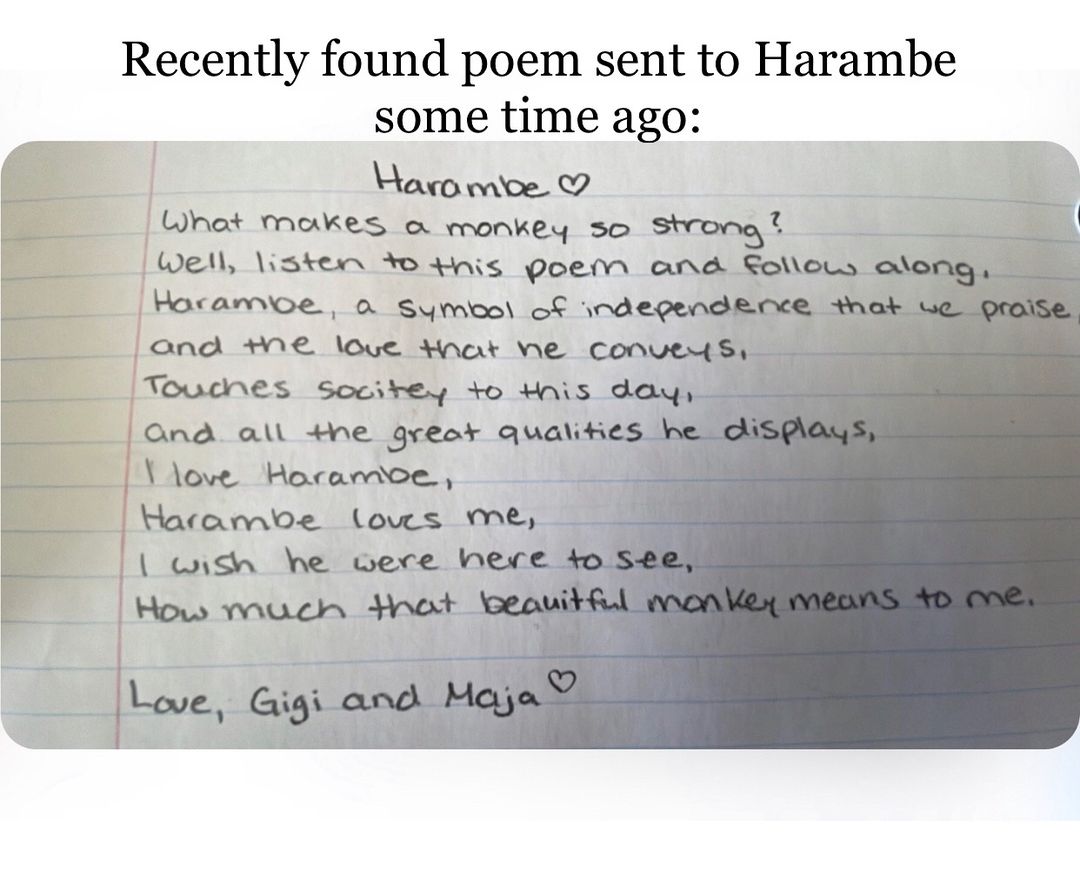 Recently found poem sent to Harambe
some time ago:
Harambe ♡
What makes a monkey so strong?
Well, listen to this poem and follow along.
Harambe, a symbol of independence that we praise,
and the love that he conveys,
Touches socitey to this day,
and all the great qualities he displays,
I love Harambe,
Harambe loves me,
I wish he were here to see,
How much that beauitful monkey means to me.
Love, Gigi and Maja ♡